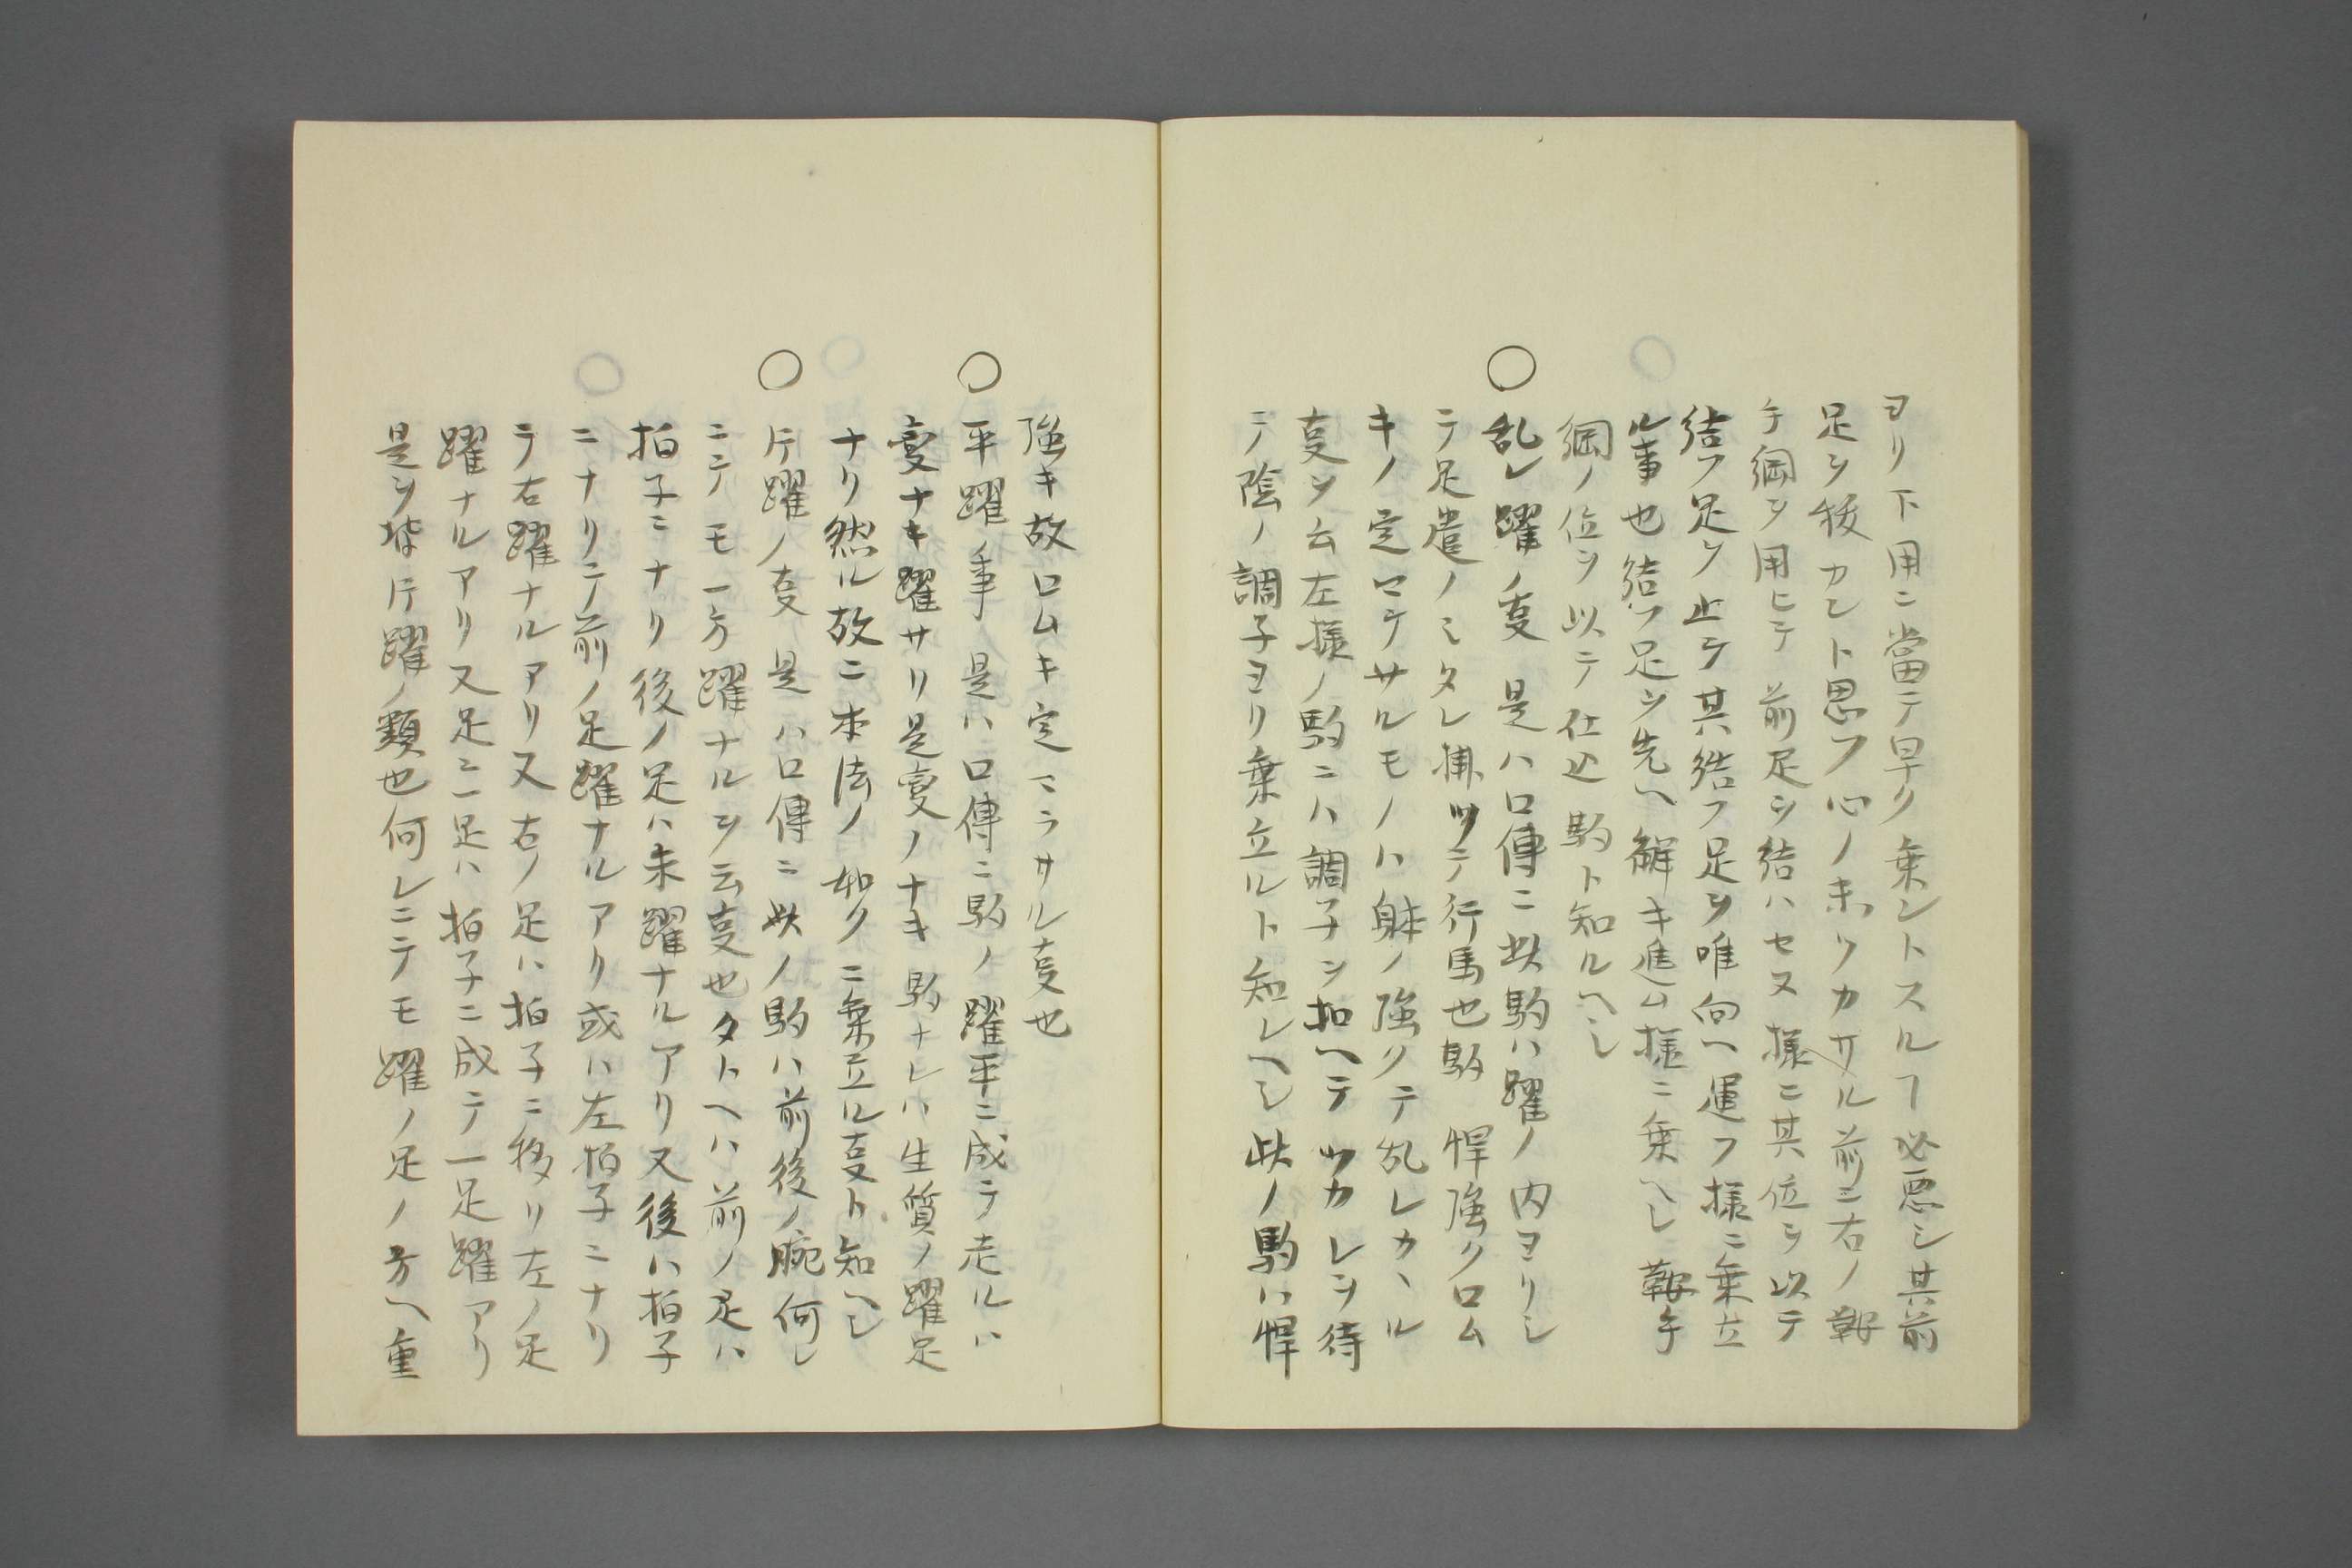 ヨリ下用ニ當テ早ク乗ントスルヿ必悪シ其前
足ヲ抜カント思フ心ノ未ツカサル前ニ右ノ鞍
手綱ヲ用ヒテ前足ヲ結ハセヌ様ニ其位ヲ以テ
結フ足ヲ止テ其結フ足ヲ唯向ヘ運フ様ニ乗立
ル事也結フ足ヲ先ヘ解キ進ム様ニ乗ヘシ鞍手
綱ノ位ヲ以テ仕込駒ト知ルヘシ
○乱レ躍ノ叓是ハ口傳ニ此駒ハ躍ノ内ヨリシ
テ足遣ノミタレ捕ツテ行馬也駒悍強ク口ム
キノ定マテサルモノハ躰ノ強クテ乱レカヽル
叓ヲ云左様ノ駒ニハ調子ヲ拍ヘテツカレヲ待
テ陰ノ調子ヨリ乗立ルト知レヘシ此ノ駒ハ悍
強キ故口ムキ定マラサル叓也
○平躍ノ事是ハ口傳ニ駒ノ躍平ニ成ラ走ルハ
変ナキ躍サリ是変ノナキ駒ナレハ生質ノ躍足
ナリ然ル故ニ本法ノ如クニ乗立ル叓ト知ヘシ
○片躍ノ叓是ハ口傳ニ此ノ駒ハ前後ノ腕何レ
ニテモ一方躍ナルヲ云叓也タトヘハ前ノ足ハ
拍子ニナリ後ノ足ハ未躍ナルアリ又後ハ拍子
ニナリテ前ノ足躍ナルアリ或ハ左拍子ニナリ
テ右躍ナルアリ又右ノ足ハ拍子ニ移リ左ノ足
躍ナルアリ又足ニ一足ハ拍子ニ成テ一足躍アリ
是ヲ皆片躍ノ類也何レニテモ躍ノ足ノ方ヘ重